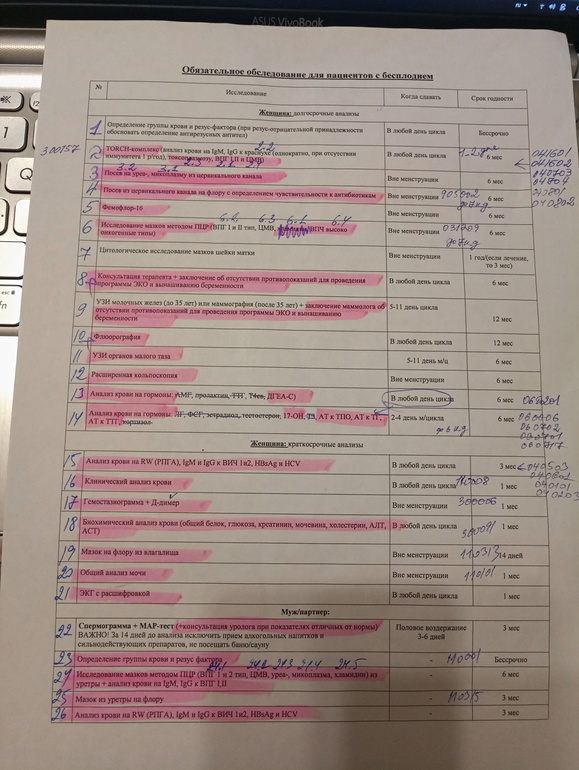 ASUS VivoBook
Обязательное обследование для пациентов с бесплодием
№ Исследование Когда сдавать Срок годности
Женщина: долгосрочные анализы
1 Определение группы крови и резус-фактора (при резус-отрицательной принадлежности В любой день цикла Бессрочно
обосновать определение антирезусных антител)
300157 2 TORCH-комплекс (анализ крови на IgM, IgG к краснухе (однократно, при отсутствии В любой день цикла 6 мес 041601
иммунитета 1 р/год), токсоплазмозу, ВПГ I,II и ЦМВ) 041602
3 Посев на уреа-, микоплазму из цервикального канала Вне менструации 6 мес 040703
4 Посев из цервикального канала на флору с определением чувствительности к антибиотикам Вне менструации 905002 6 мес
5 Фемофлор-16 Вне менструации 6 мес 040802
6.2 6.3 6.1 6.4
6 Исследование мазков методом ПЦР (ВПГ I и II тип, ЦМВ, ВПЧ высоко Вне менструации 031709 6 мес
онкогенные типы)
7 Цитологическое исследование мазков шейки матки Вне менструации 1 год(если лечение,
то 3 мес)
8 Консультация терапевта + заключение об отсутствии противопоказаний для проведения В любой день цикла 6 мес
программы ЭКО и вынашиванию беременности
9 УЗИ молочных желез (до 35 лет) или маммография (после 35 лет) + заключение маммолога об 5-11 день цикла 12 мес
отсутствии противопоказаний для проведения программы ЭКО и вынашиванию
беременности
10 Флюорография В любой день цикла 12 мес
11 УЗИ органов малого таза 5-11 день м/ц 6 мес
12 Расширенная кольпоскопия Вне менструации 6 мес
13 Анализ крови на гормоны: АМГ, пролактин, ТТГ, Т4св, ДГЕА-С) В любой день цикла 6 мес
14 Анализ крови на гормоны: ЛГ, ФСГ, эстрадиол, тестостерон, 17-ОН, Т3, АТ к ТПО, АТ к ТГ, 2-4 день м/цикла 6 мес
АТ к ТТГ, кортизол
Женщина: краткосрочные анализы
15 Анализ крови на RW (РПГА), IgM и IgG к ВИЧ 1и2, HBsAg и HCV В любой день цикла 3 мес 040503
16 Клинический анализ крови В любой день цикла 110008 1 мес
040101
17 Гемостазиограмма + Д-димер Вне менструации 300006 1 мес 040203
18 Биохимический анализ крови (общий белок, глюкоза, креатинин, мочевина, холестерин, АЛТ, В любой день цикла 1 мес
АСТ)
19 Мазок на флору из влагалища Вне менструации 110313 14 дней
20 Общий анализ мочи Вне менструации 110101 1 мес
21 ЭКГ с расшифровкой В любой день цикла 1 мес
Муж/партнер:
22 Спермограмма + МАР-тест (+консультация уролога при показателях отличных от нормы) Половое воздержание 3 мес
ВАЖНО! За 14 дней до анализа исключить прием алкогольных напитков и 3-6 дней
сильнодействующих препаратов, не посещать баню/сауну
23 Определение группы крови и резус фактора - 110001 Бессрочно
24.1 24.2 24.3 21.4 24.5
24 Исследование мазков методом ПЦР (ВПГ 1 и 2 тип, ЦМВ, уреа-, микоплазма, хламидии) из - 6 мес
уретры + анализ крови на IgM, IgG к ВПГ I,II
25 Мазок из уретры на флору - 110315 3 мес
26 Анализ крови на RW (РПГА), IgM и IgG к ВИЧ 1и2, HBsAg и HCV - 3 мес